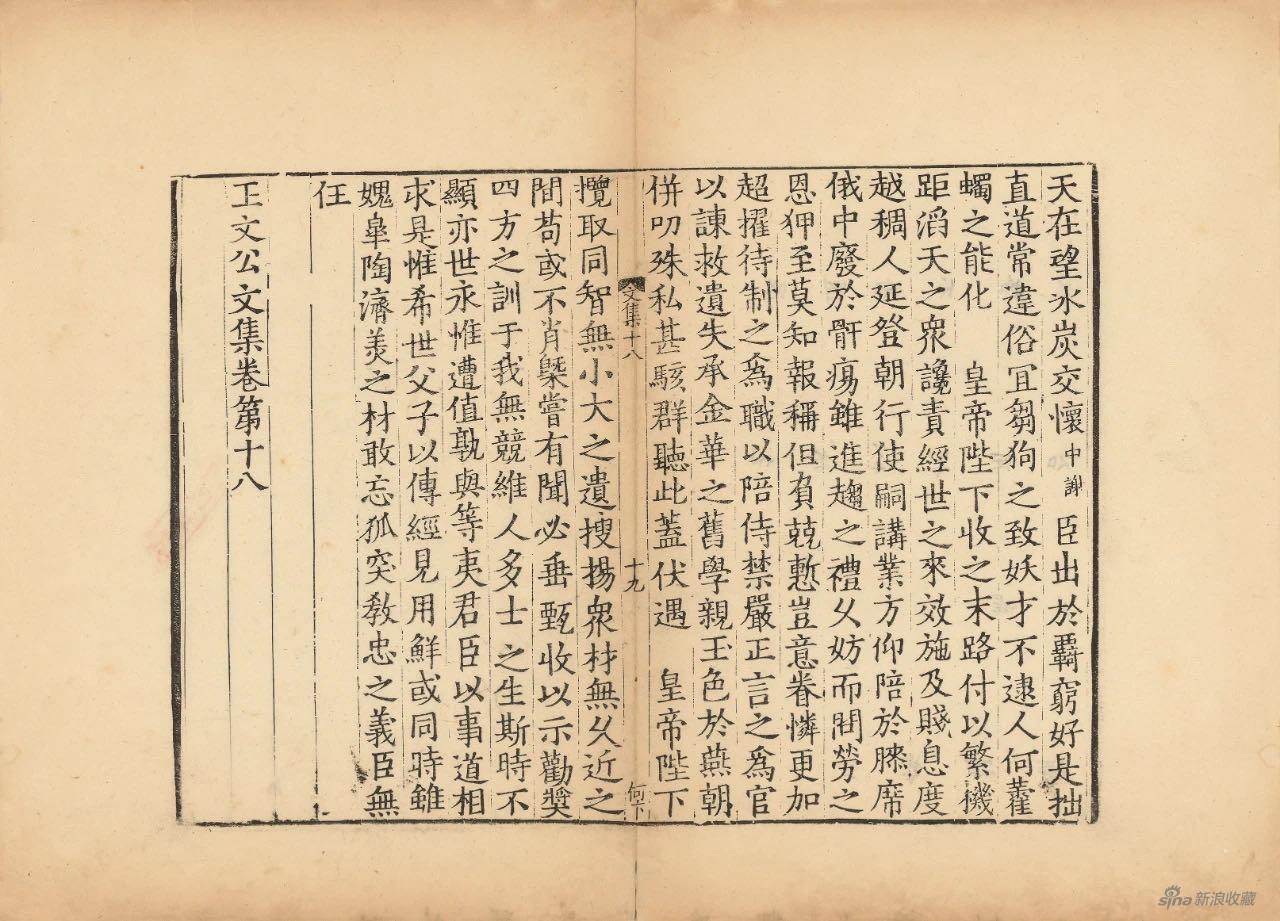 天在望冰炭交懷中謝臣出於羇窮好是拙
直道常違俗冝芻狗之致妖才不逮人何藿
蠋之能化　皇帝陛下收之末路付以繁機
距滔天之衆讒責經世之來效施及賤息度
越稠人延登朝行使嗣講業方仰陪於牓席
俄中廢於骭瘍雖進趨之禮乆妨而閒勞之
恩狎至莫知報稱但負兢慙豈意眷憐更加
超擢待制之爲職以陪侍禁嚴正言之爲官
以諫救遺失承金華之舊學親玉色於燕朝
併叨殊私甚駭群聽此蓋伏遇　皇帝陛下
文集十八
十九
何下
攬取同智無小大之遺搜揚衆材無乆近之
間苟或不肖槩嘗有聞必垂甄收以示勸奬
四方之訓于我無競維人多士之生斯時不
顯亦世永惟遭值孰與等夷君臣以事道相
求是惟希世父子以傳經見用鮮或同時雖
媿臯陶濟羙之材敢忘狐突敎忠之義臣無
任
王文公文集卷第十八
sina新浪收藏